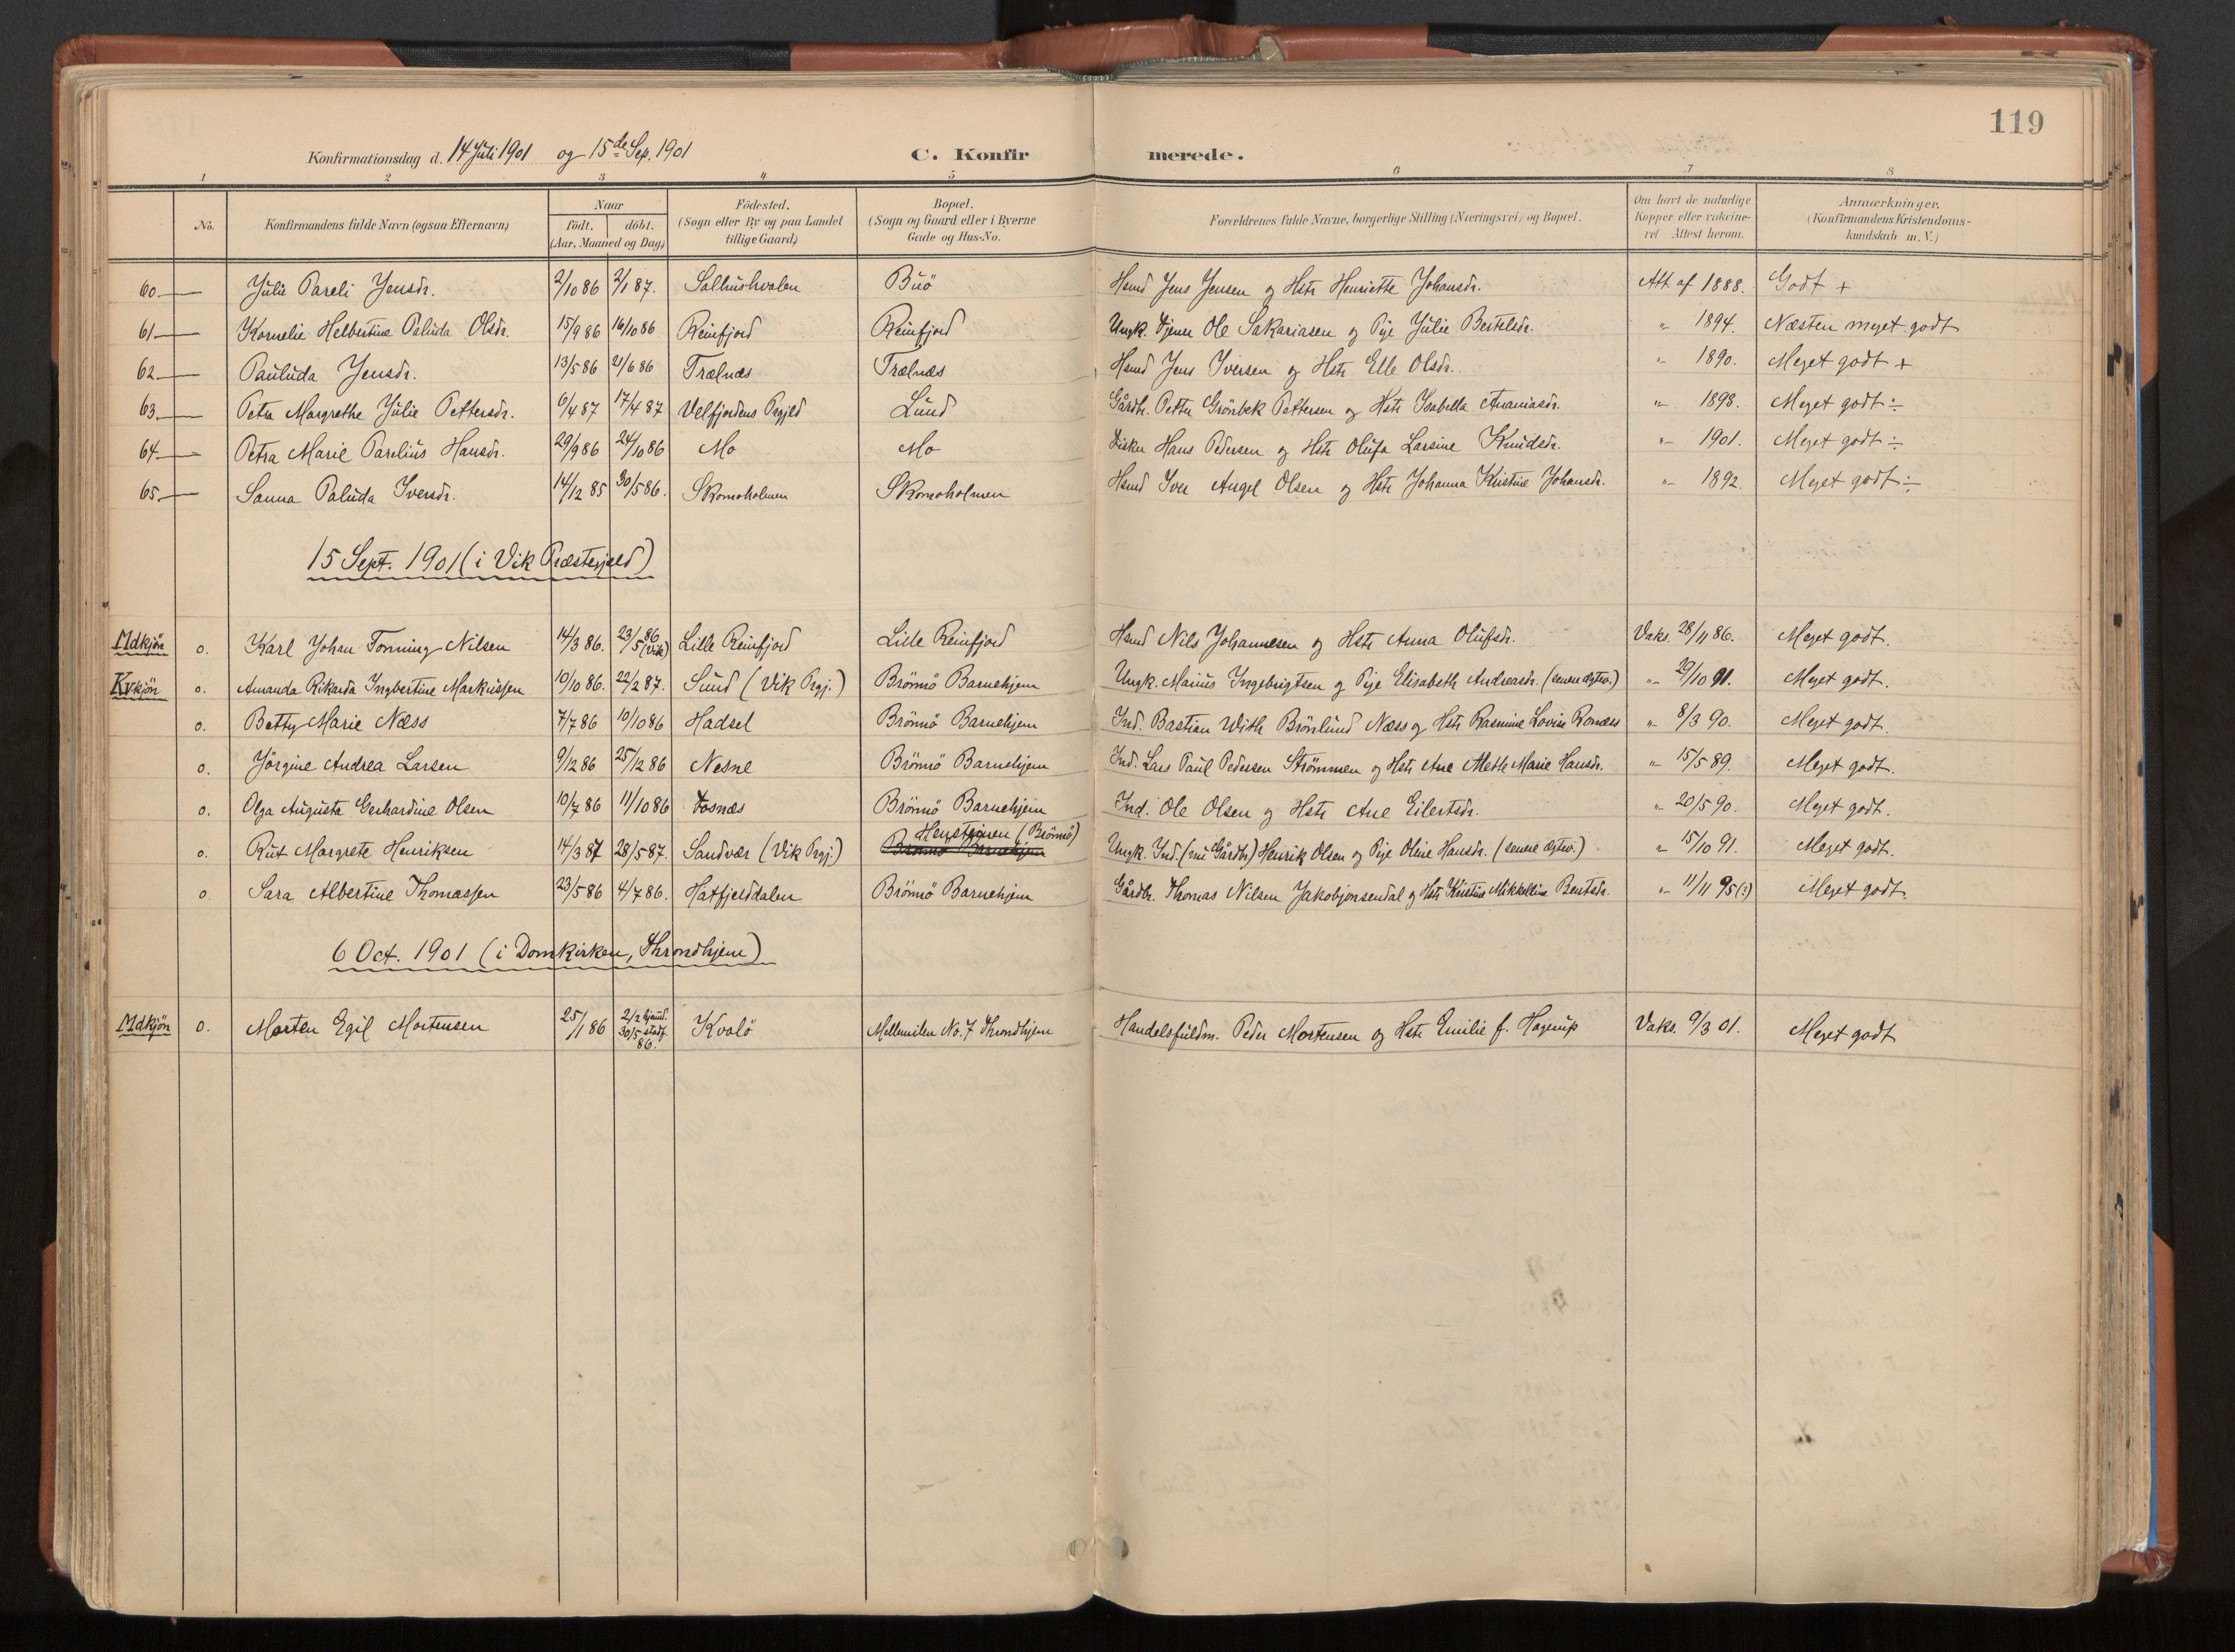 119
Konfirmationsdag d. 14 Juli 1901 og 15de Sep. 1901 C. Konfirmerede.
1 2 3 4 5 6 7 8
No. Konfirmandens fulde Navn (ogsaa Efternavn) Naar født. døbt. (Aar, Maaned og Dag) Fødested. (Sogn eller By og paa Landet tillige Gaard) Bopæl. (Sogn og Gaard eller i Byerne Gade og Hus-No. Forældrenes fulde Navne, borgerlige Stilling (Næringsvei) og Bopæl. Om havt de naturlige Kopper eller vakcineret. Attest herom. Anmærkninger, (Konfirmandens Kristendomskundskab m. V.)
60. Julie Pareli Jensdr. 2/10 86 2/1 87. Salhushvalen Buö Hsmd Jens Jensen og Hstr Henriette Johansdr. Att. af 1888. Godt +
61 Kornelie Helbertine Paluda Olsdr. 15/9 86 16/10 86 Reinfjord Reinfjord Ungk. Tjener Ole Sakariasen og Pige Julie Bertelsdr. " 1894. Næsten meget godt
62 Pauluda Jensdr. 13/5 86 21/6 86 Trælnæs Trælnæs Hsmd Jens Iversen og Hstr Elle Olsdr. " 1890. Meget godt +
63 Petra Margrethe Julie Pettersdr. 6/4 87 17/4 87 Velfjordens Prgjld Lund Gårdbr. Petter Grönbek Pettersen og Hstr Isabella Ananiasdr. " 1898. Meget godt ÷
64 Petra Marie Parelius Hansdr. 29/9 86 24/10 86 Mo Mo Fisker Hans Pedersen og Hstr Olufa Larsine Knudsdr. " 1901. Meget godt ÷
65 Sanna Paluda Iversdr. 14/12 85 30/5 86. Skomoholmen Skomoholmen Hsmd Iver Angel Olsen og Hstr Johanna Kristine Johansdr. " 1892. Meget godt ÷
15 Sept. 1901 (i Vik Præstegjeld)
Mdkjön o. Karl Johan Tonning Nilsen 14/3 86. 23/5 86 (Vik) Lille Reinfjord Lille Reinfjord Hsmd Nils Johannesen og Hstr Anna Olufsdr. Vaks. 28/11 86. Meget godt.
Kvkjön o. Amanda Rikarda Ingbertine Markussen 10/10 86. 22/2 87. Sund (Vik Prgj.) Brönnö Barnehjem Ungk. Marius Ingebrigtsen og Pige Elisabeth Andreasdr. (senere ægtev.) " 29/10 91. Meget godt.
o. Betty Marie Næss 7/7 86 10/10 86 Hadsel Brönnö Barnehjem Ind. Bastian With Brönlund Næss og Hstr Rasmine Lovise Ronæss " 8/3 90. Meget godt.
o. Jörgine Andrea Larsen 9/12 86 25/12 86 Nesne Brönnö Barnehjem Ind. Lars Paul Pedersen Strömmen og Hstr Ane Mette Marie Hansdr. " 15/5 89. Meget godt.
o. Olga Augusta Gerhardine Olsen 10/7 86 11/10 86 Fosnæs Brönnö Barnehjem Ind. Ole Olsen og Hstr Ane Eilertsdr. " 20/5 90. Meget godt.
o. Rut Margrete Henriksen 14/3 87 28/5 87. Sandvær (Vik Prgj.) Brönnö Barnehjem Hensteinen (Brönnö) Ungk. Ind. (nu Gårdbr) Henrik Olsen og Pige Oline Hansdr. (senere ægtev.) " 15/10 91. Meget godt.
o. Sara Albertine Thomassen 23/5 86 4/7 86. Hatfjelddalen Brönnö Barnehjem Gårdbr. Thomas Nilsen Jakobjonsendal og Hstr Kristine Mikkeline Bentsdr. " 11/11 95 (?) Meget godt.
6 Oct. 1901 (i Domkirken, Throndhjem)
Mdkjön o. Morten Egil Mortensen 25/1 86 2/2 hjemd. 30/5 stadf. 86. Kvalö Mellemilen No. 7 Throndhjem Handelsfuldm. Peder Mortensen og Hstr Emilie f. Hagerup Vaks. 9/3 01. Meget godt